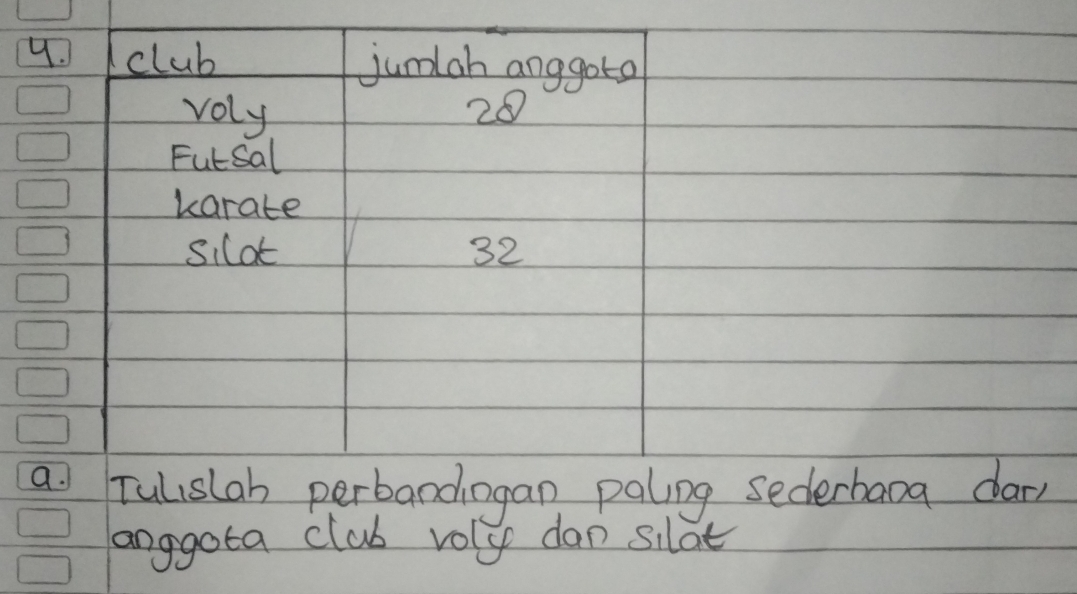 4. club jumlah anggota
voly 28
Futsal
karate
Silat 32
a. Tulislah perbandingan paling sederhana dari
anggota club voly dan silat